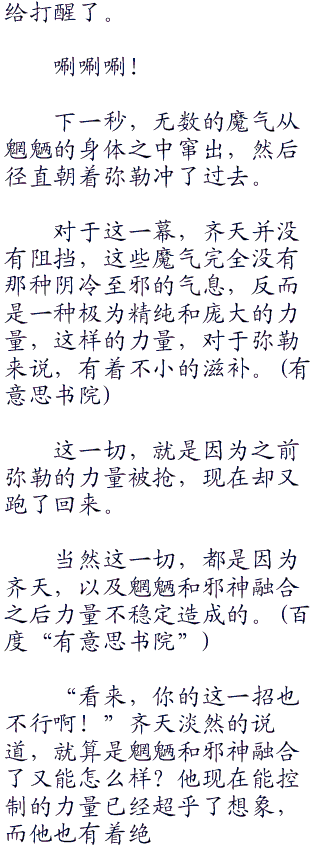 给打醒了。
唰唰唰！
下一秒，无数的魔气从
魍魉的身体之中窜出，然后
径直朝着弥勒冲了过去。
对于这一幕，齐天并没
有阻挡，这些魔气完全没有
那种阴冷至邪的气息，反而
是一种极为精纯和庞大的力
量，这样的力量，对于弥勒
来说，有着不小的滋补。(有
意思书院)
这一切，就是因为之前
弥勒的力量被抢，现在却又
跑了回来。
当然这一切，都是因为
齐天，以及魍魉和邪神融合
之后力量不稳定造成的。(百
度“有意思书院”)
“看来，你的这一招也
不行啊！”齐天淡然的说
道，就算是魍魉和邪神融合
了又能怎么样？他现在能控
制的力量已经超乎了想象，
而他也有着绝